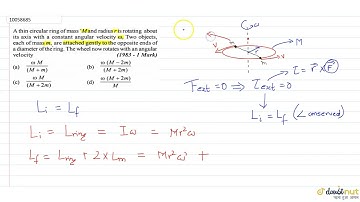 10058685
A thin circular ring of mass 'M' and radius r is rotating about
its axis with a constant angular velocity ω, Two objects,
each of mass m, are attached gently to the opposite ends of
a diameter of the ring. The wheel now rotates with an angular
velocity (1983 - 1 Mark)
(a) ω M / (M + m) (b) ω (M − 2m) / (M + 2m)
(c) ω M / (M + 2m) (d) ω (M + 2m) / M
ω
M
m
m
v
v
r
τ = r⃗ × F⃗
F ext = 0 ⇒ τ ext = 0
L i = L f (L conserved)
L i = L f
L i = L ring = Iω = Mr²ω
L f = L ring + 2 × L m = Mr²ω' +
doubtnut